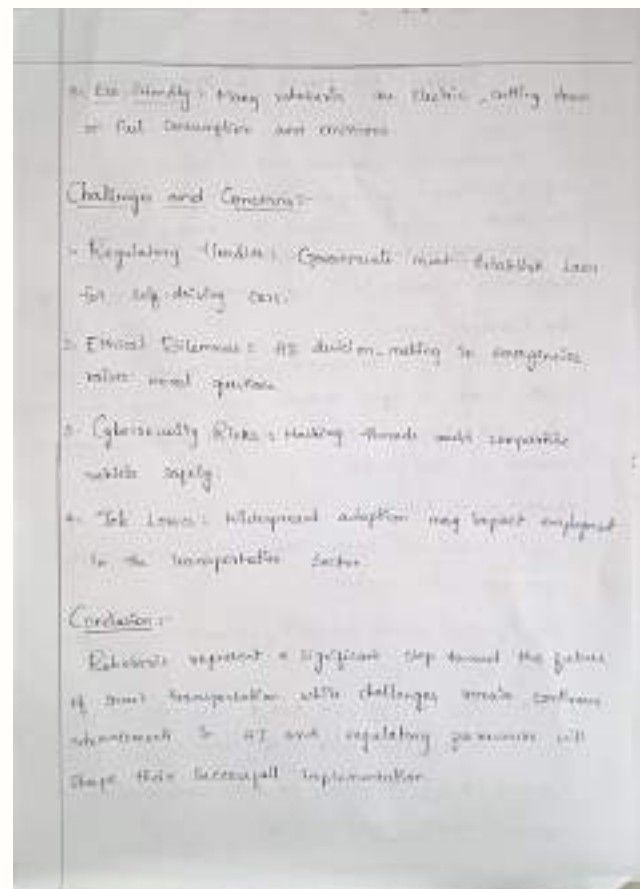 Eco friendly : Many robotaxis are electric, cutting down
on fuel consumption and emissions
Challenges and Concerns:-
1. Regulatory Hurdles : Governments must establish laws
for self-driving cars.
2. Ethical Dilemmas : AI decision-making in emergencies
raises moral questions
3. Cybersecurity Risks : Hacking threads could compromise
vehicle safely.
4. Job Losses : Widespread adoption may impact employment
in the transportation sector
Conclusion :-
Robotaxis represent a significant step toward the future
of smart transportation while challenges remain continuous
advancement in AI and regulating will
shape their successfull implementation